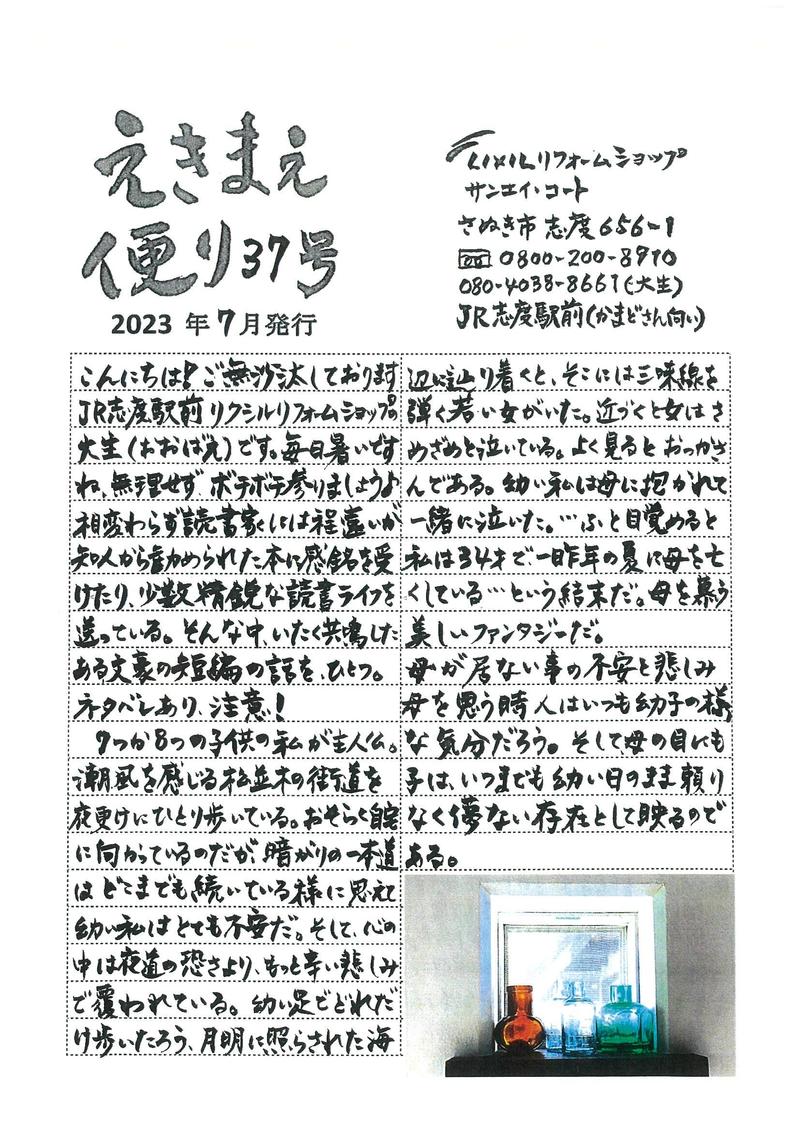 えきまえ
便り37号
2023 年 7 月発行
LIXILリフォームショップ
サンエイ・コート
さぬき市 志度656-1
0800-200-8910
080-4038-8661(大生)
JR志度駅前(かまどさん向い)
こんにちは!ご無沙汰しております
JR志度駅前リクシルリフォームショップの
大生(おおばえ)です。毎日暑いです
ね、無理せず、ボチボチ参りましょうよ
相変わらず読書家には程遠いが
知人から勧められた本に感銘を受
けたり、少数精鋭な読書ライフを
送っている。そんな中、いたく共鳴した
ある文豪の短編の話を、ひとつ。
ネタバレあり、注意!
7つか8つの子供の私が主人公。
潮風を感じる松並木の街道を
夜更けにひとり歩いている。おそらく自宅
に向かっているのだが、暗がりの一本道
はどこまでも続いている様に思えて
幼い私はとても不安だ。そして、心の
中は夜道の恐さより、もっと辛い悲しみ
で覆われている。幼い足でどれだ
け歩いたろう、月明に照らされた海
辺に辿り着くと、そこには三味線を
弾く若い女がいた。近づくと女はさ
めざめと泣いている。よく見ると おっかさ
んである。幼い私は母に抱かれて
一緒に泣いた。…ふと目覚めると
私は34才で、一昨年の夏に母を亡
くしている…という結末だ。母を慕う
美しいファンタジーだ。
母が居ない事の不安と悲しみ
母を思う時 人はいつも幼子の様
な気分だろう。そして母の目にも
子は、いつまでも幼い日のまま頼り
なく儚ない存在として映るので
ある。